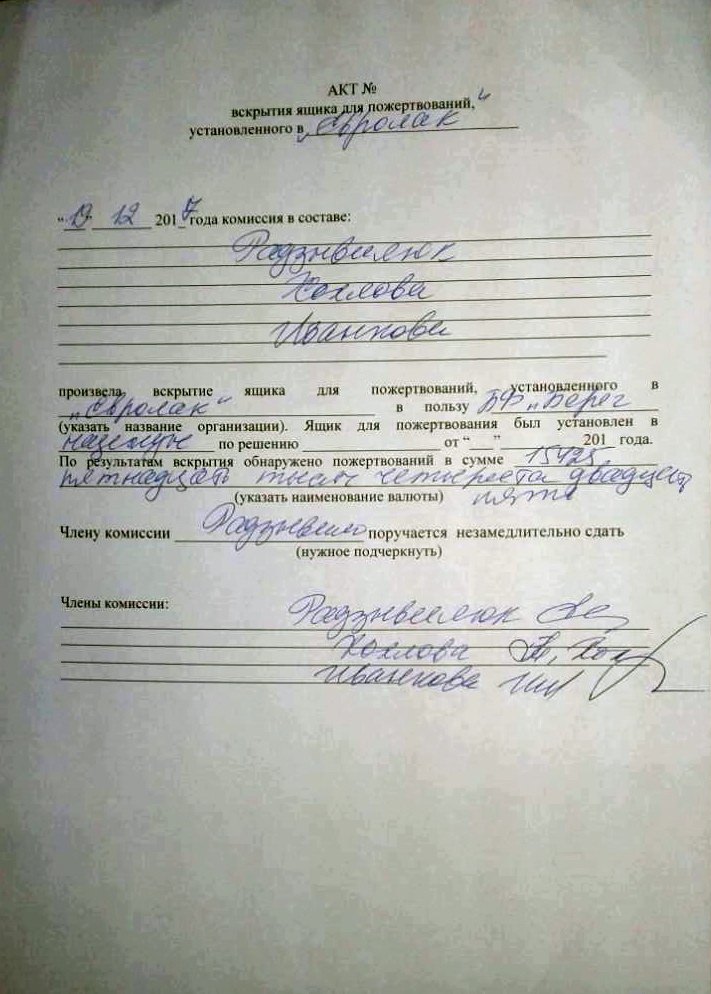 АКТ №
вскрытия ящика для пожертвований,
установленного в „Евролак"
“ ” 12 2017 года комиссия в составе:
Радзывилюк
Хохлова
Иванкова
произвела вскрытие ящика для пожертвований, установленного в
„Евролак" в пользу БФ „Берег
(указать название организации). Ящик для пожертвования был установлен в
по решению от “ ” 201 года.
По результатам вскрытия обнаружено пожертвований в сумме 15425
пятнадцать тысяч четыреста двадцать
(указать наименование валюты) пять
Члену комиссии Радзывило поручается незамедлительно сдать
(нужное подчеркнуть)
Члены комиссии: Радзывилюк
Хохлова
Иванкова